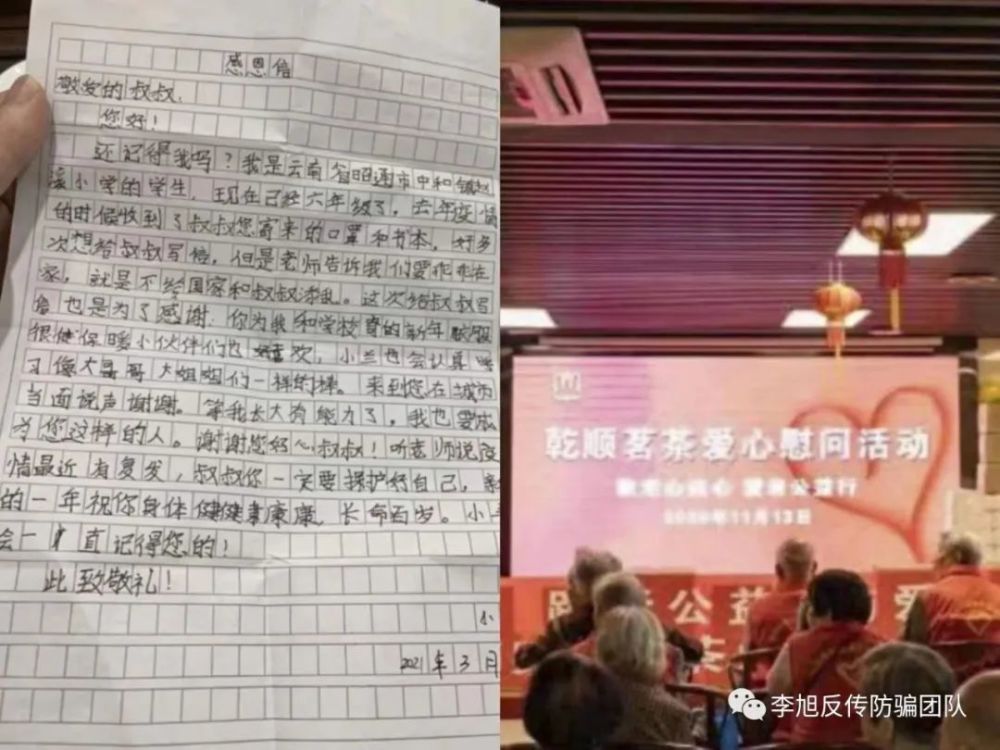 感恩信
敬爱的叔叔.
您好!
还记得我吗?我是云南省昭通市中和镇
小学的学生.现在已经六年级了.去年疫情
的时候收到了叔叔您寄来的口罩和书本.好多
次想给叔叔写信.但是老师告诉我们要乖乖在
家,就是不给国家和叔叔添乱.这次给叔叔写
信也是为了感谢.你为我和学校寄的新年
很健保暖小伙伴们也喜欢,小兰也会认真
习像大哥哥大姐姐们一样的棒。来到您在城市
当面说声谢谢。等我长大有能力了,我也要
为您这样的人。谢谢您好心叔叔!听老师说疫
情最近有复发,叔叔你一定要保护好自己,
的一年祝你身体健健康康,长命百岁。小
会一直记得您的!
此致敬礼!
小
2021年3月
乾顺茗茶爱心慰问活动
公益行
2020年11月13日
公益 爱
李旭反传防骗团队